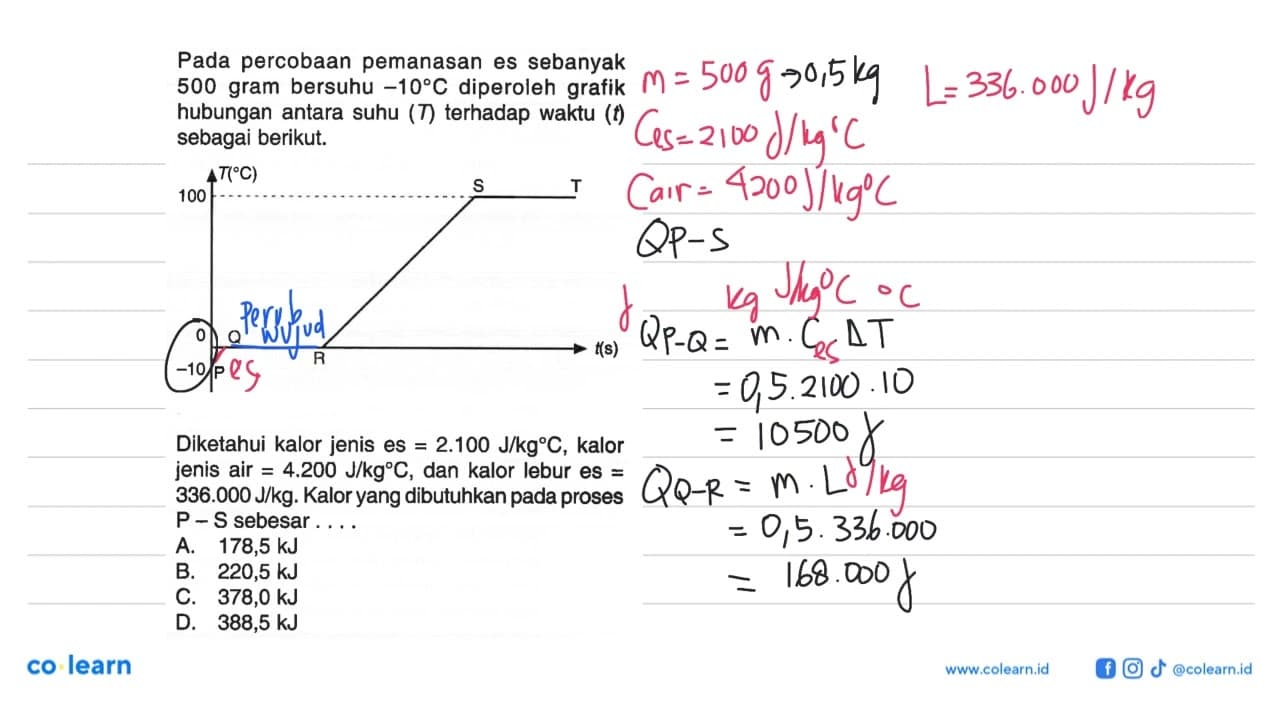 Pada percobaan pemanasan es sebanyak
500 gram bersuhu –10°C diperoleh grafik
hubungan antara suhu (T) terhadap waktu (t)
sebagai berikut.
T(°C)
100
S
T
0
Q
Perub
wujud
–10
P
es
R
t(s)
Diketahui kalor jenis es = 2.100 J/kg°C, kalor
jenis air = 4.200 J/kg°C, dan kalor lebur es =
336.000 J/kg. Kalor yang dibutuhkan pada proses
P – S sebesar . . . .
A. 178,5 kJ
B. 220,5 kJ
C. 378,0 kJ
D. 388,5 kJ
m = 500 g → 0,5 kg
L = 336.000 J/kg
Ces = 2100 J/kg°C
Cair = 4200 J/kg°C
QP-S
J kg J/kg°C °C
QP-Q = m . Ces ΔT
= 0,5 . 2100 . 10
= 10500 J
QQ-R = m . L J/kg
= 0,5 . 336.000
= 168.000 J
co learn
www.colearn.id
@colearn.id